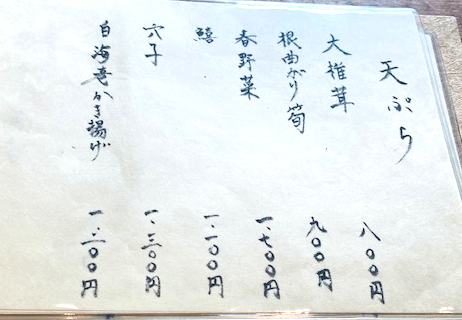 天ぷら
大椎茸 八〇〇円
根曲がり筍 九〇〇円
春野菜 一、七〇〇円
鱚 一、一〇〇円
穴子 一、三〇〇円
白海老かき揚げ 一、二〇〇円